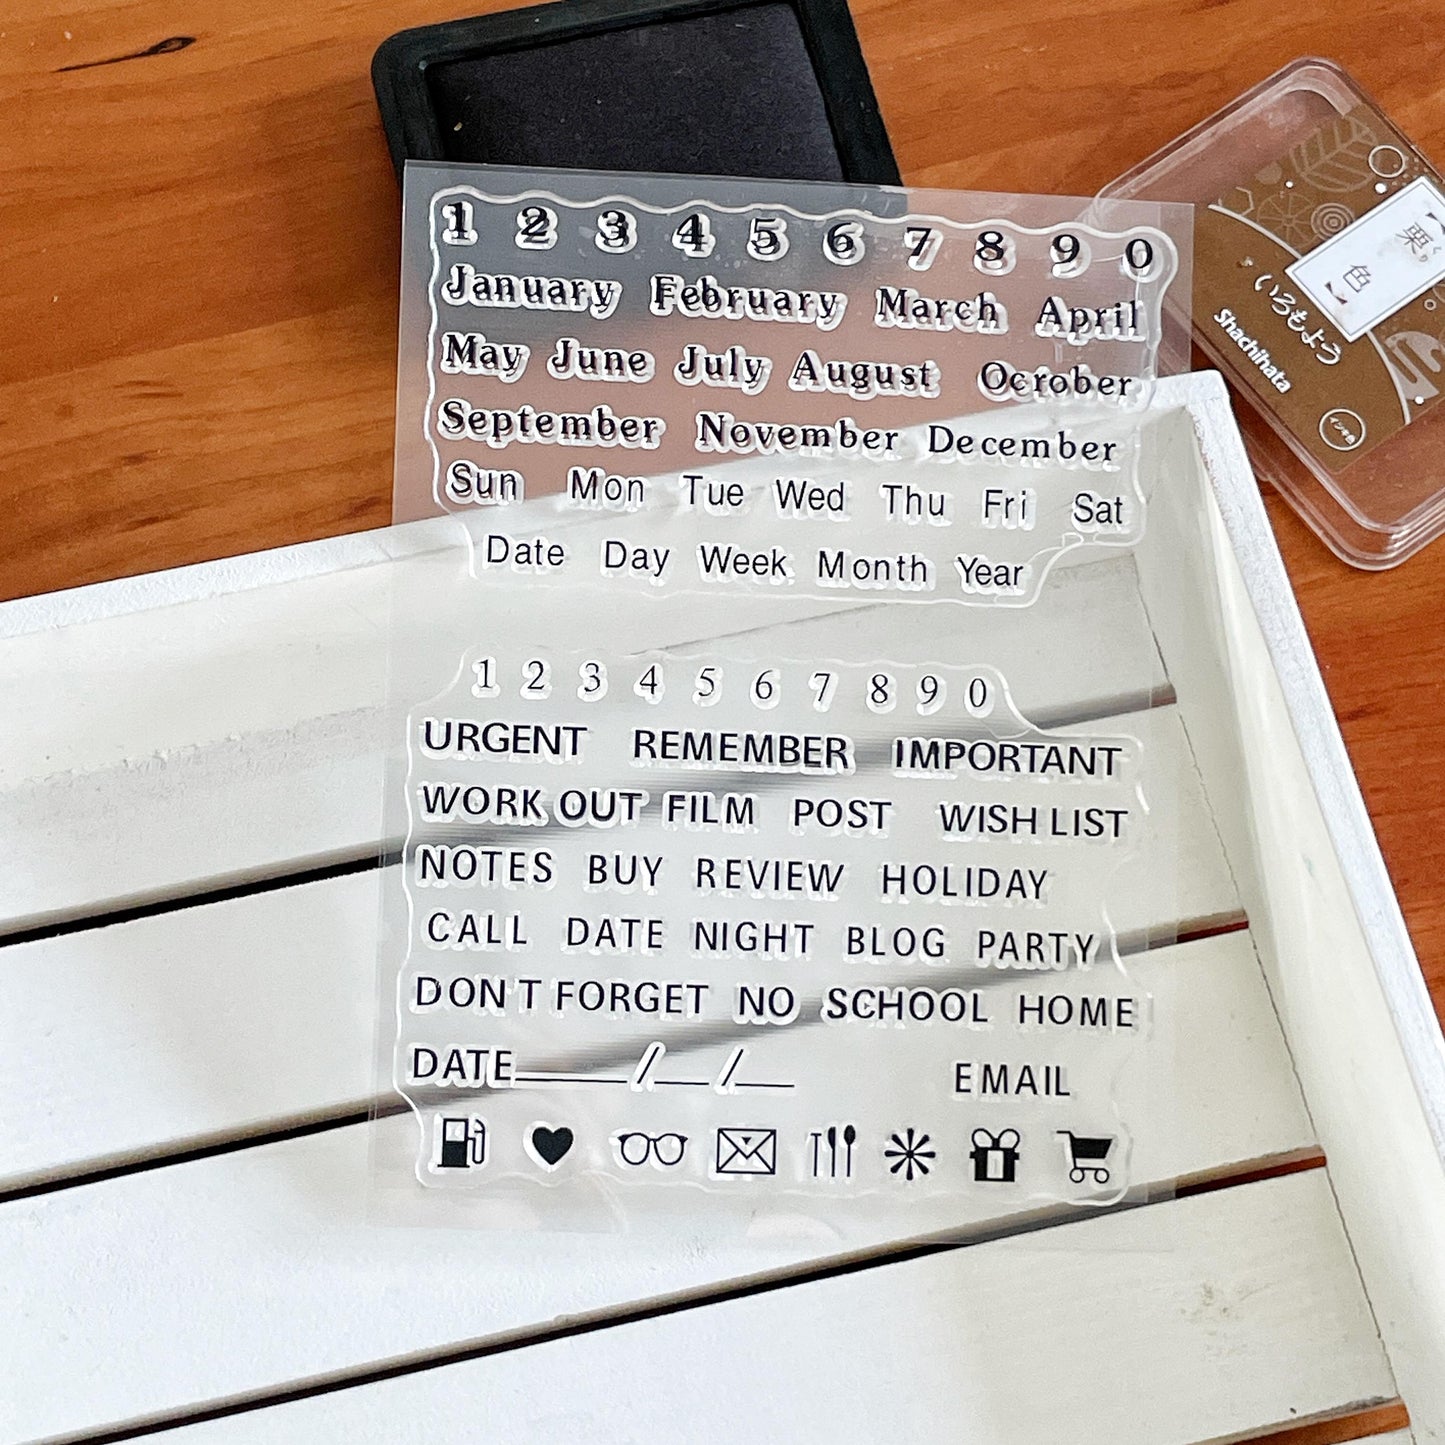 1 2 3 4 5 6 7 8 9 0
January February March April
May June July August Ocrober
September November December
Sun Mon Tue Wed Thu Fri Sat
Date Day Week Month Year
1 2 3 4 5 6 7 8 9 0
URGENT REMEMBER IMPORTANT
WORK OUT FILM POST WISH LIST
NOTES BUY REVIEW HOLIDAY
CALL DATE NIGHT BLOG PARTY
DON'T FORGET NO SCHOOL HOME
DATE_____/__/__ EMAIL
【栗色】
いろもよう
Shachihata